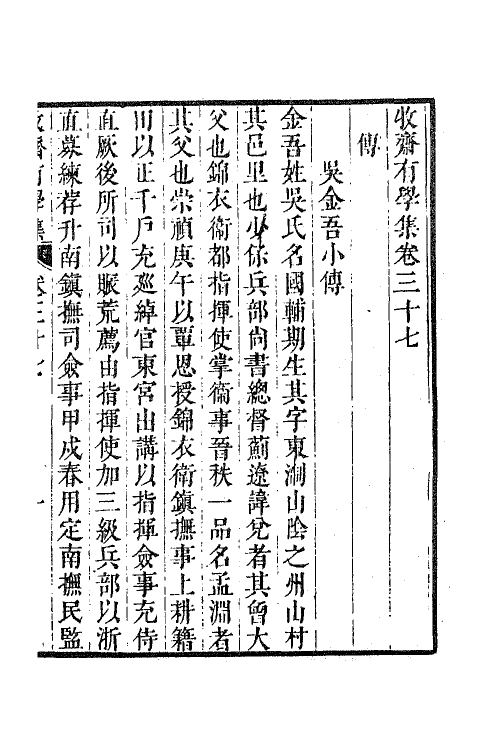 牧齋有學集卷三十七
傳
吳金吾小傳
金吾姓吳氏名國輔期生其字東澗山陰之州山村
其邑里也少保兵部尚書總督薊遼諱兌者其曾大
父也錦衣衞都指揮使掌衞事晉秩一品名孟淵者
其父也崇禎庚午以覃恩授錦衣衞鎮撫事上耕籍
田以正千戶充廵綽官東宮出講以指揮僉事充侍
直厥後所司以賑荒薦由指揮使加三級兵部以浙
直募練荐升南鎮撫司僉事甲戌春用定南撫民監
有學集 卷三十七 一